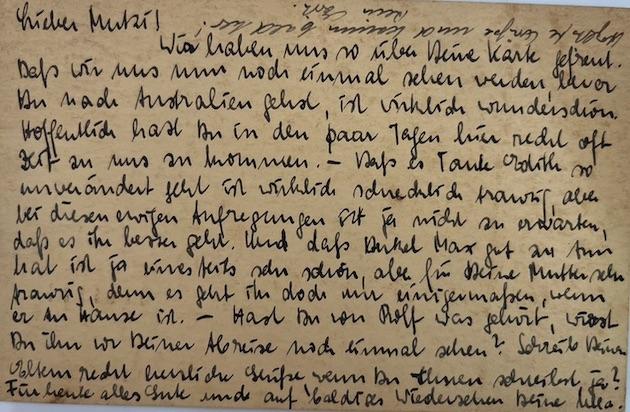 Lieber Mutzi!
Wir haben uns so über Deine Karte gefreut.
Daß wir uns nun noch einmal sehen werden, bevor
Du nach Australien gehst, ist wirklich wunderschön.
Hoffentlich hast Du in den paar Tagen hier recht oft
Zeit zu uns zu kommen. – Daß es Tante Edith so
unverändert geht ist wirklich schrecklich traurig, aber
bei diesen ewigen Aufregungen ist ja nicht zu erwarten,
daß es ihr besser geht. Und daß Onkel Max gut zu tun
hat ist ja einesteils sehr schön, aber für Deine Mutter sehr
traurig, denn es geht ihr doch nur einigermaßen, wenn
er zu Hause ist. – Hast Du von Rolf was gehört, wirst
Du ihn vor Deiner Abreise noch einmal sehen? Schreib Deinen
Eltern recht herzliche Grüße wenn Du Ihnen schreibst, ja?
Für heute alles Gute und auf baldiges Wiedersehen Deine